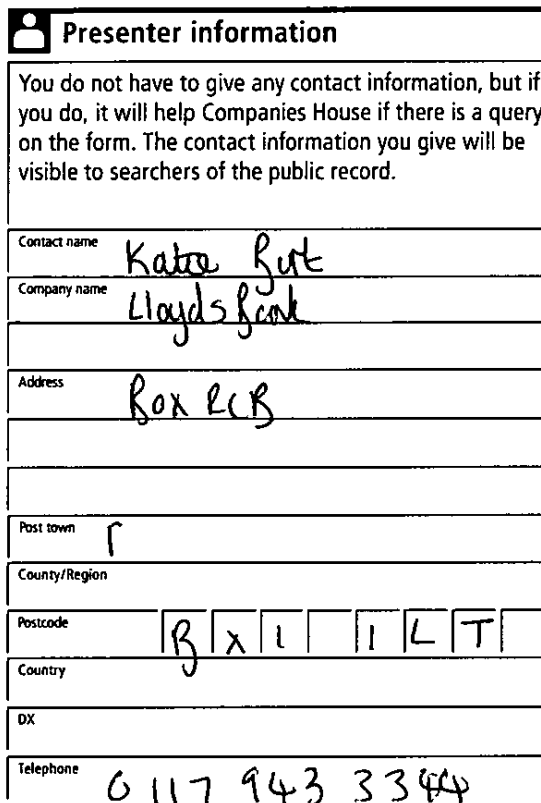 Presenter information
You do not have to give any contact information, but if
you do, it will help Companies House if there is a query
on the form. The contact information you give will be
visible to searchers of the public record.
Contact name Katie
Company name Lloyds Bank
Address Box RCB
Post town
County/Region
Postcode BX1 1LT
Country
DX
Telephone 0117 943 3344